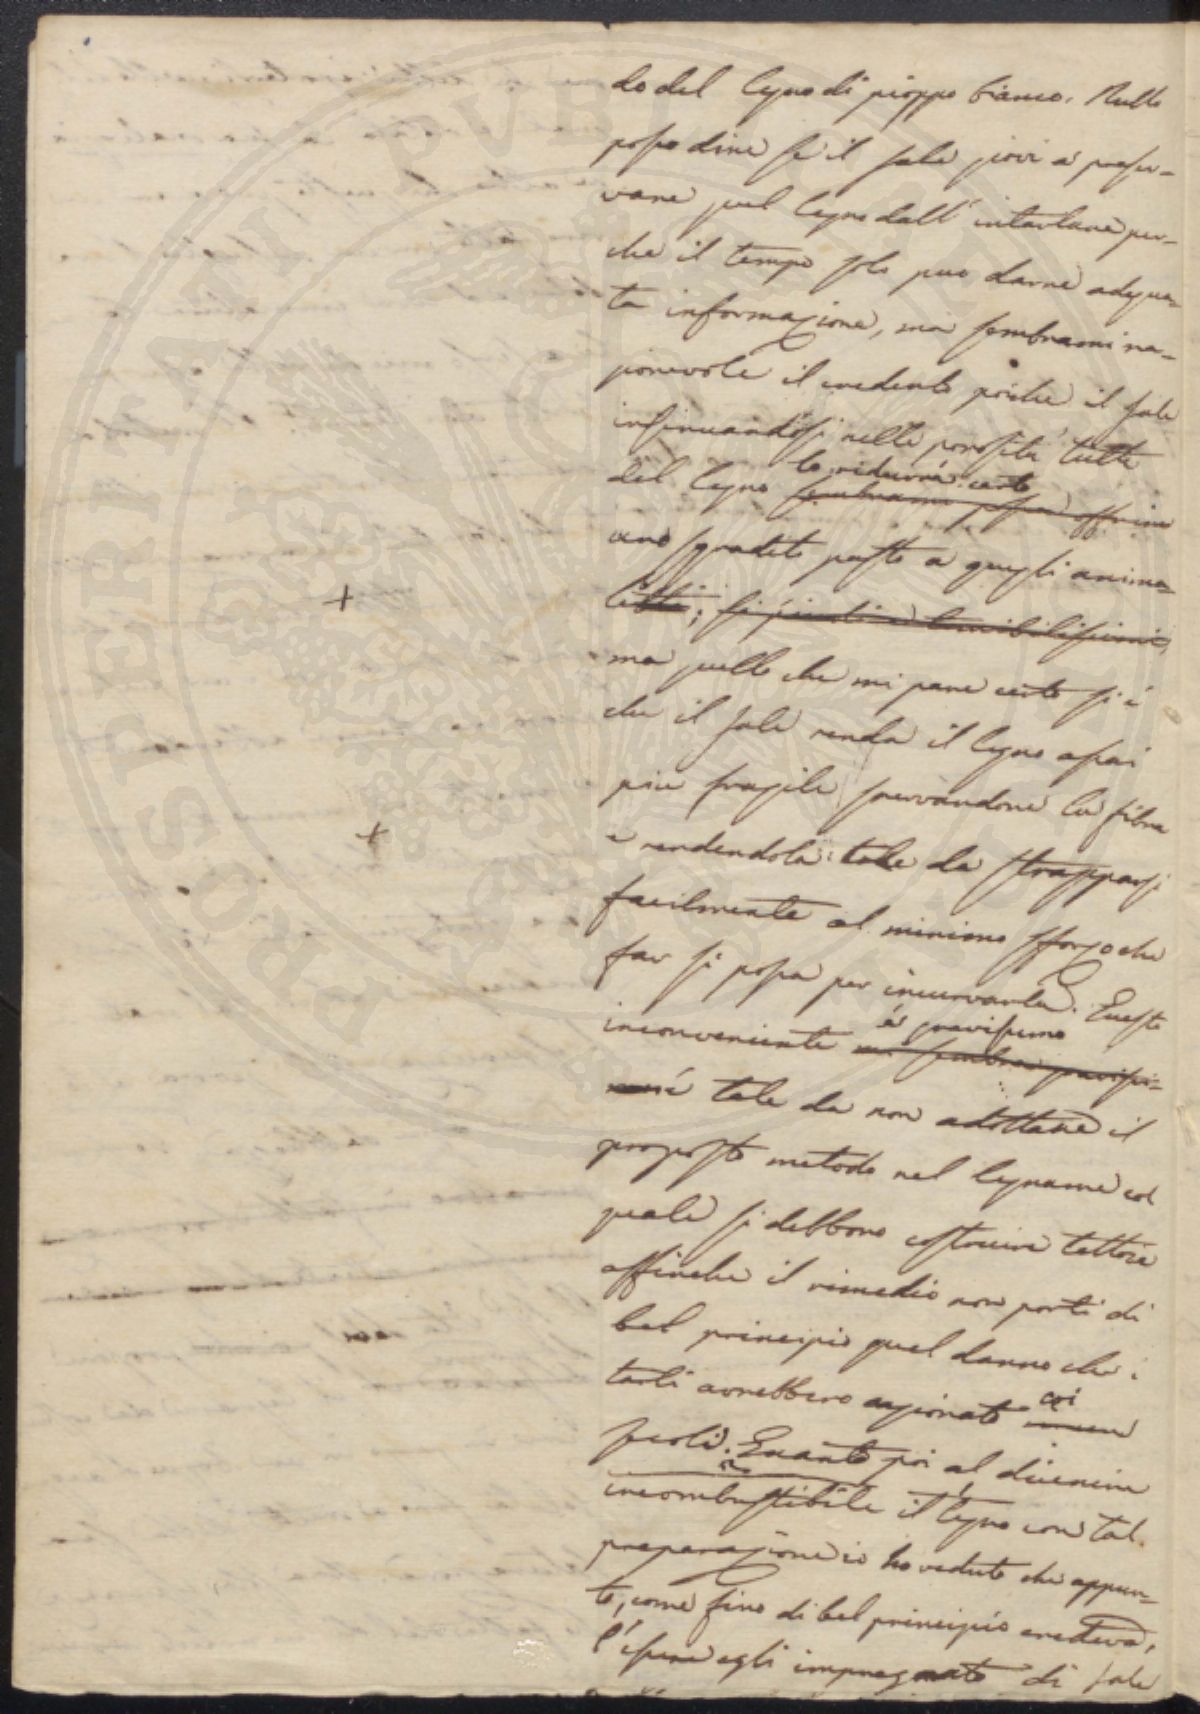 do del legno di pioppo bianco. Nulla
posso dire se il sale giovi a preser-
vare quel legno dall' intarlare per-
che il tempo solo puo darne adequa-
ta informazione, ma sembrami ra-
gionevole il crederlo poiche il sale
insinuandosi nelle porosità tutte
lo ridurrá certo
del legno sembrami possa offrire
uno sgradito pasto a quegli anima-
letti;
ma quello che mi pare certo si é
che il sale renda il legno assai
piu fragile snervandone la fibra
e rendendola tale da strapparsi
facilmente al minimo sforzo che
far si possa per incurvarla. Questo
é gravissimo
inconveniente mi sembra gravissi-
mo é tale da non adottare il
proposto metodo nel legname col
quale si debbono costruire tettoie
affinche il rimedio non porti di
bel principio quel danno che i
tarli avrebbero cagionato coi
secoli. Quanto poi al divenire
incombustibile il legno con tal
preparazione io ho veduto che appun-
to, come fino di bel principio credeva,
l'essere egli impregnato di sale
PROSPERITATI PUBLICAE